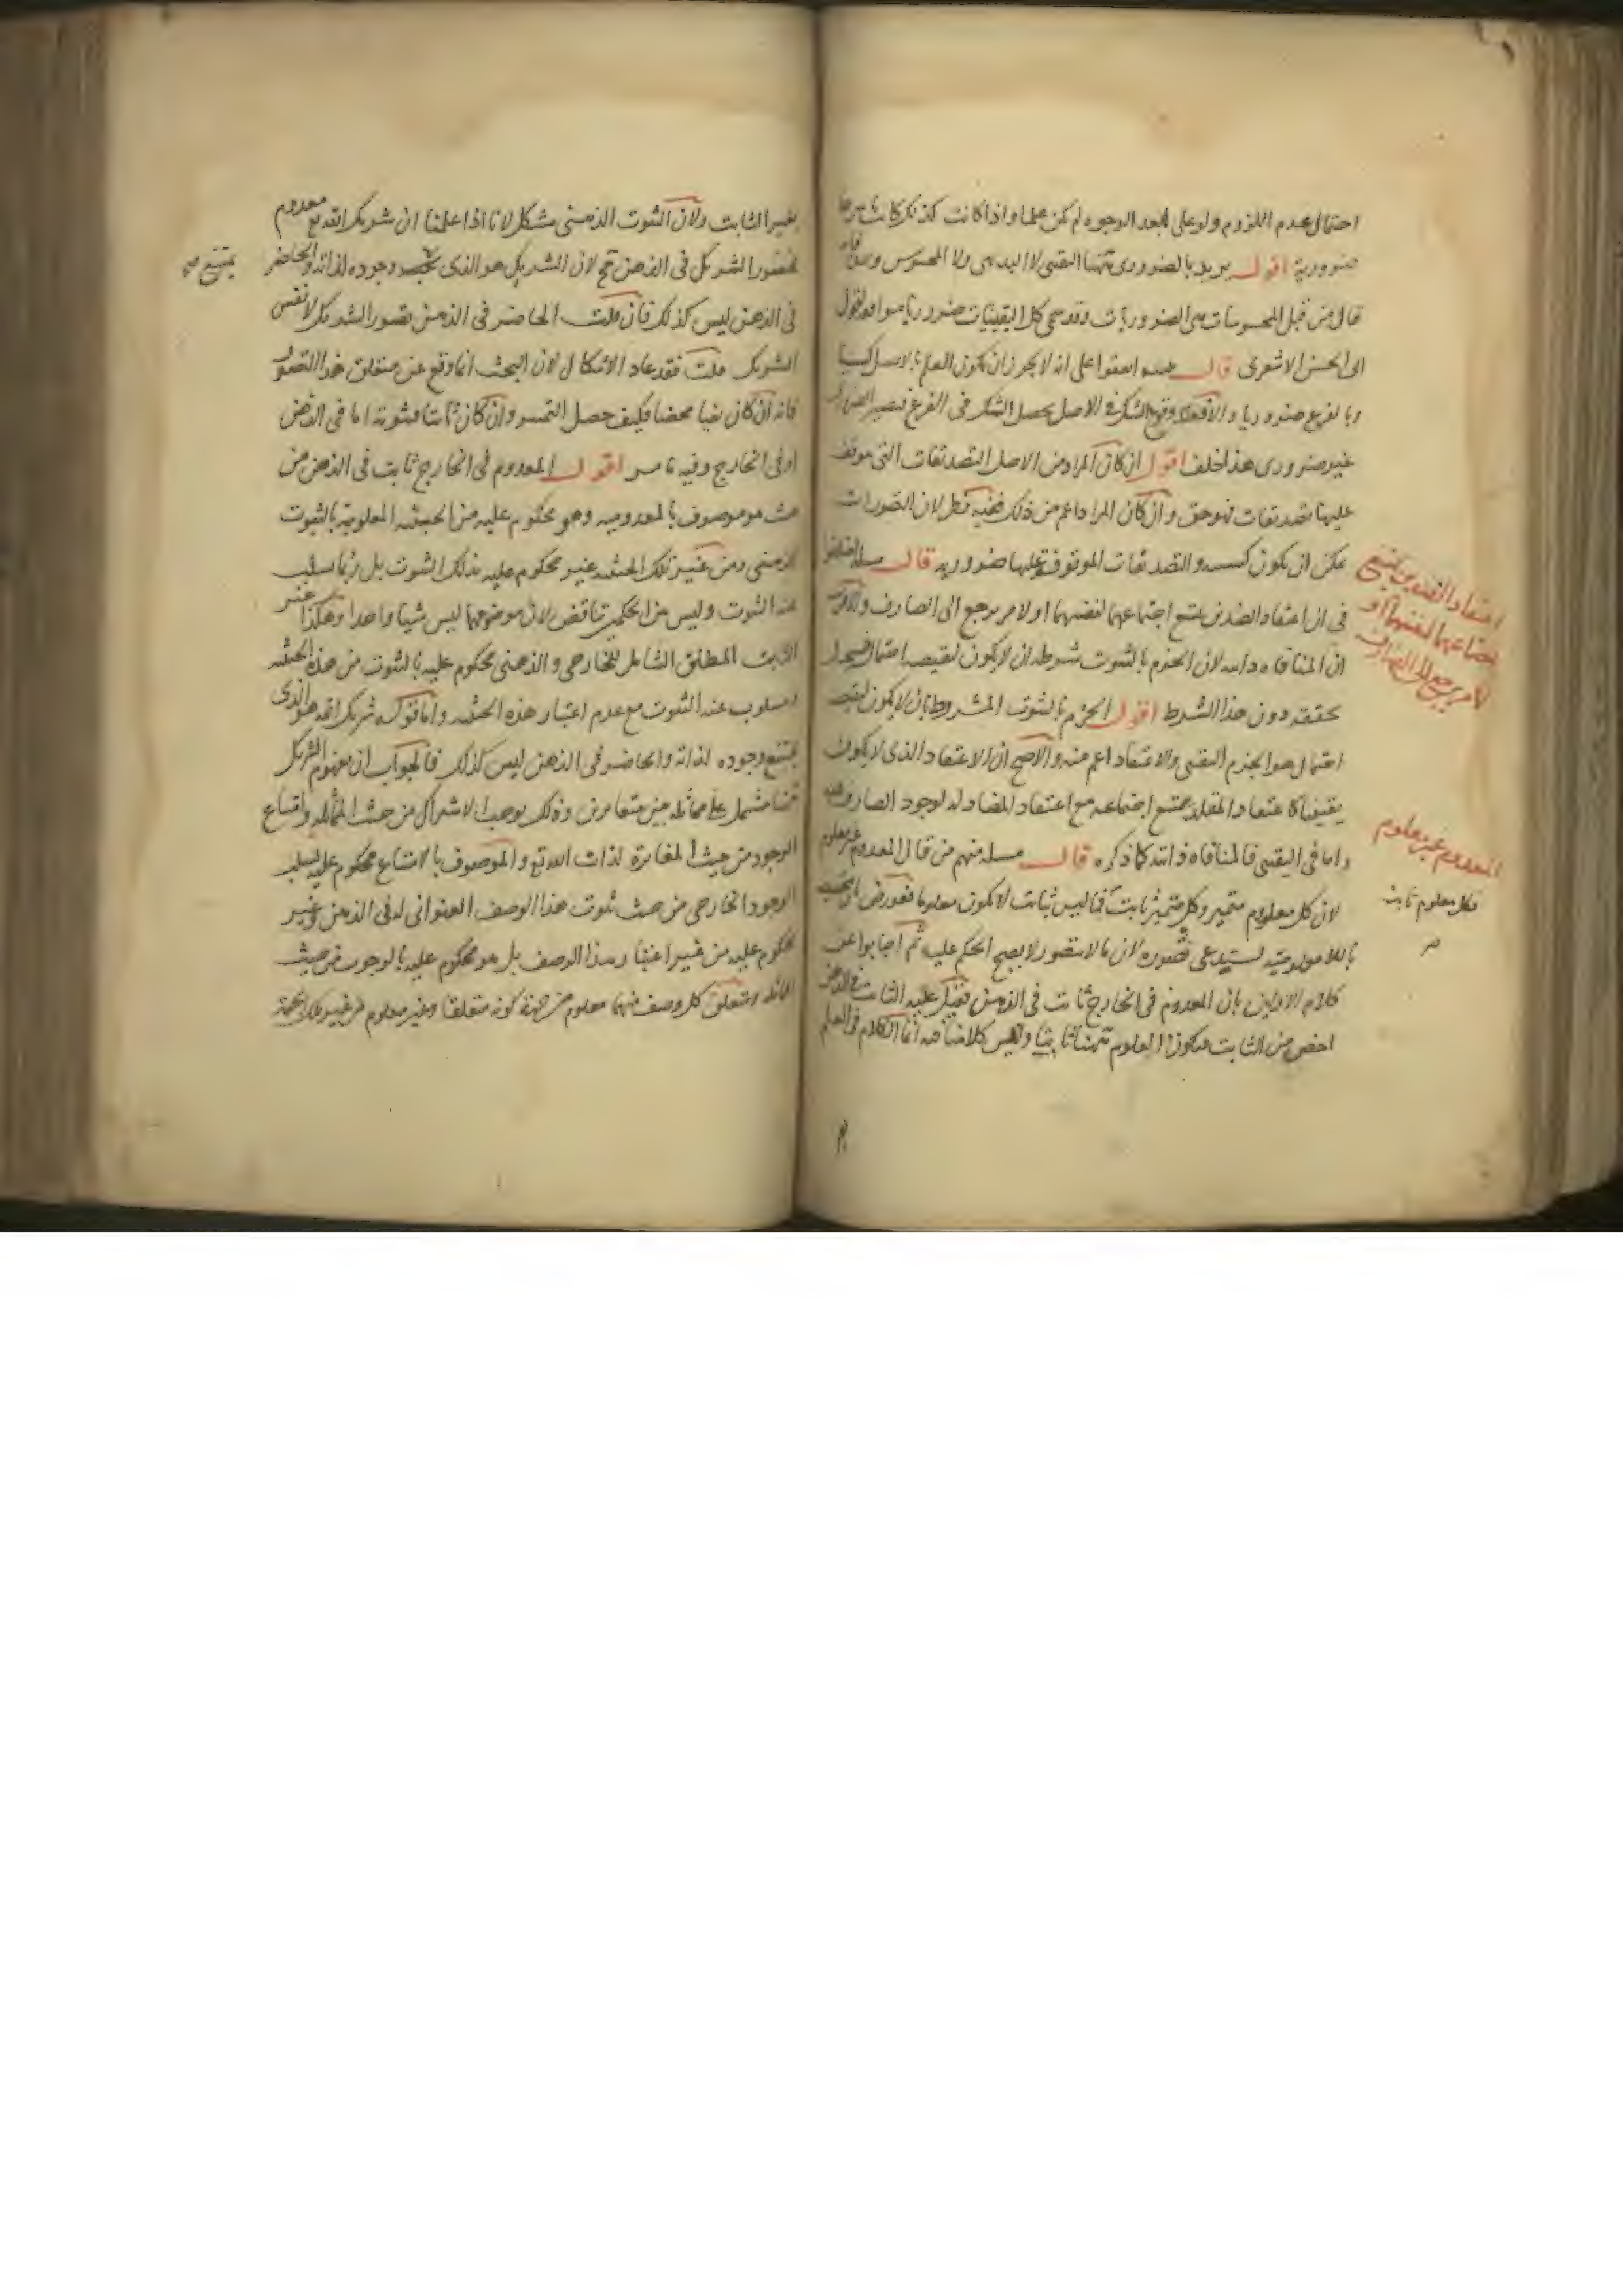 احتمال عدم اللزوم ولو على ابعد الوجوه لم يكن علما واذا كانت كذلك كانت باسرها
ضرورية اقول يريد بالضروري ههنا اليقيني لا البديهي ولا المحسوس وقد
قال من قبل المحسوسات من الضروريات وقد سمى كل اليقينيات ضروريا موافقة لقول
ابى الحسن الاشعرى قال مسئله اتفقوا على انه لا يجوز ان يكون العلم بالاصل كسبيا
وبالفرع ضروريا والا فعند وقوع الشك فى الاصل يحصل الشك فى الفرع فيصير الضرورى
غير ضرورى هذا خلف اقول ان كان المراد من الاصل التصديقات التى يتوقف
عليها تصديقات فهو حق وان كان المراد اعم من ذلك ففيه نظر لان التصورات
يمكن ان يكون كسبيه والتصديقات الموقوفة عليها ضروريه قال مسئله اختلفوا
فى ان اعتقاد الضدين يمتنع اجتماعهما لنفسهما او لامر يرجع الى الصارف والاقرب
ان المنافاه ذاتيه لان الجزم بالثبوت شرطه ان لا يكون لنقيضه احتمال فيستحيل
تحققه دون هذا الشرط اقول الجزم بالثبوت المشروط بان لا يكون لنقيضه
احتمال هو الجزم اليقينى والاعتقاد اعم منه والاصح ان الاعتقاد الذى لا يكون
يقينيا كاعتقاد المقلد يمتنع اجتماعه مع اعتقاد المضاد له لوجود الصارف عنه
واما فى اليقينى فالمنافاه ذاتيه كما ذكره قال مسئله منهم من قال المعدوم غير معلوم
لان كل معلوم متميز وكل متميز ثابت فما ليس بثابت لا يكون معلوما فعورض
لا يصح الحكم عليه ثم اجابوا عن
كلام الاولين بان المعدوم فى الخارج ثابت فى الذهن فقيل عليه الثابت فى الذهن
اخص من الثابت فيكون المعلوم ههنا ثابتا وليس كلامنا فيه انما الكلام فى العلم
اعتقاد الضدين يمتنع
اجتماعهما لنفسهما او
لامر يرجع الى الصارف
المعدوم غير معلوم
فكل معلوم ثابت
بغير الثابت ولان الثبوت الذهنى مشكل لانا اذا علمنا ان شريك الله تع معدوم
فحضور الشريك فى الذهن مح لان الشريك هو الذى يجب وجوده لذاته والحاضر
فى الذهن ليس كذلك فان قلت الحاضر فى الذهن تصور الشريك لا نفس
الشريك قلت فقد عاد الاشكال لان البحث انما وقع عن متعلق هذا التصور
فانه ان كان نفيا محضا فكيف حصل التميز وان كان ثابتا فثبوته اما فى الذهن
او فى الخارج وفيه ما مر اقول المعدوم فى الخارج ثابت فى الذهن من
حيث هو موصوف بالمعدوميه وهو محكوم عليه من الحيثيه المعلومية بالثبوت
الذهنى ومن غير تلك الحيثيه غير محكوم عليه بذلك الثبوت بل ربما سلب
عنه الثبوت وليس من الحكمين تناقض لان موضوعهما ليس شيا واحدا وهكذا غير
الثابت المطلق الشامل للخارجى والذهنى محكوم عليه بالثبوت من هذه الحيثيه
ومسلوب عنه الثبوت مع عدم اعتبار هذه الحيثيه واما قوله شريك الله هو الذى
يمتنع وجوده لذاته والحاضر فى الذهن ليس كذلك فالجواب ان مفهوم الشريك
مشتمل على مماثله بين متغايرين وذلك يوجب الاشتراك من حيث المماثله وامتناع
الوجود من حيث المغايرة لذات الله تع والموصوف بالامتناع محكوم عليه بسلب
الوجود الخارجى من حيث ثبوت هذا الوصف العنوانى له فى الذهن وغير
محكوم عليه من غير اعتبار هذا الوصف بل هو محكوم عليه بالوجوب من حيث
المماثله ومتعلق كل وصف منهما معلوم من جهة كونه متعلقا وغير معلوم من غير تلك الجهة
يمتنع صح